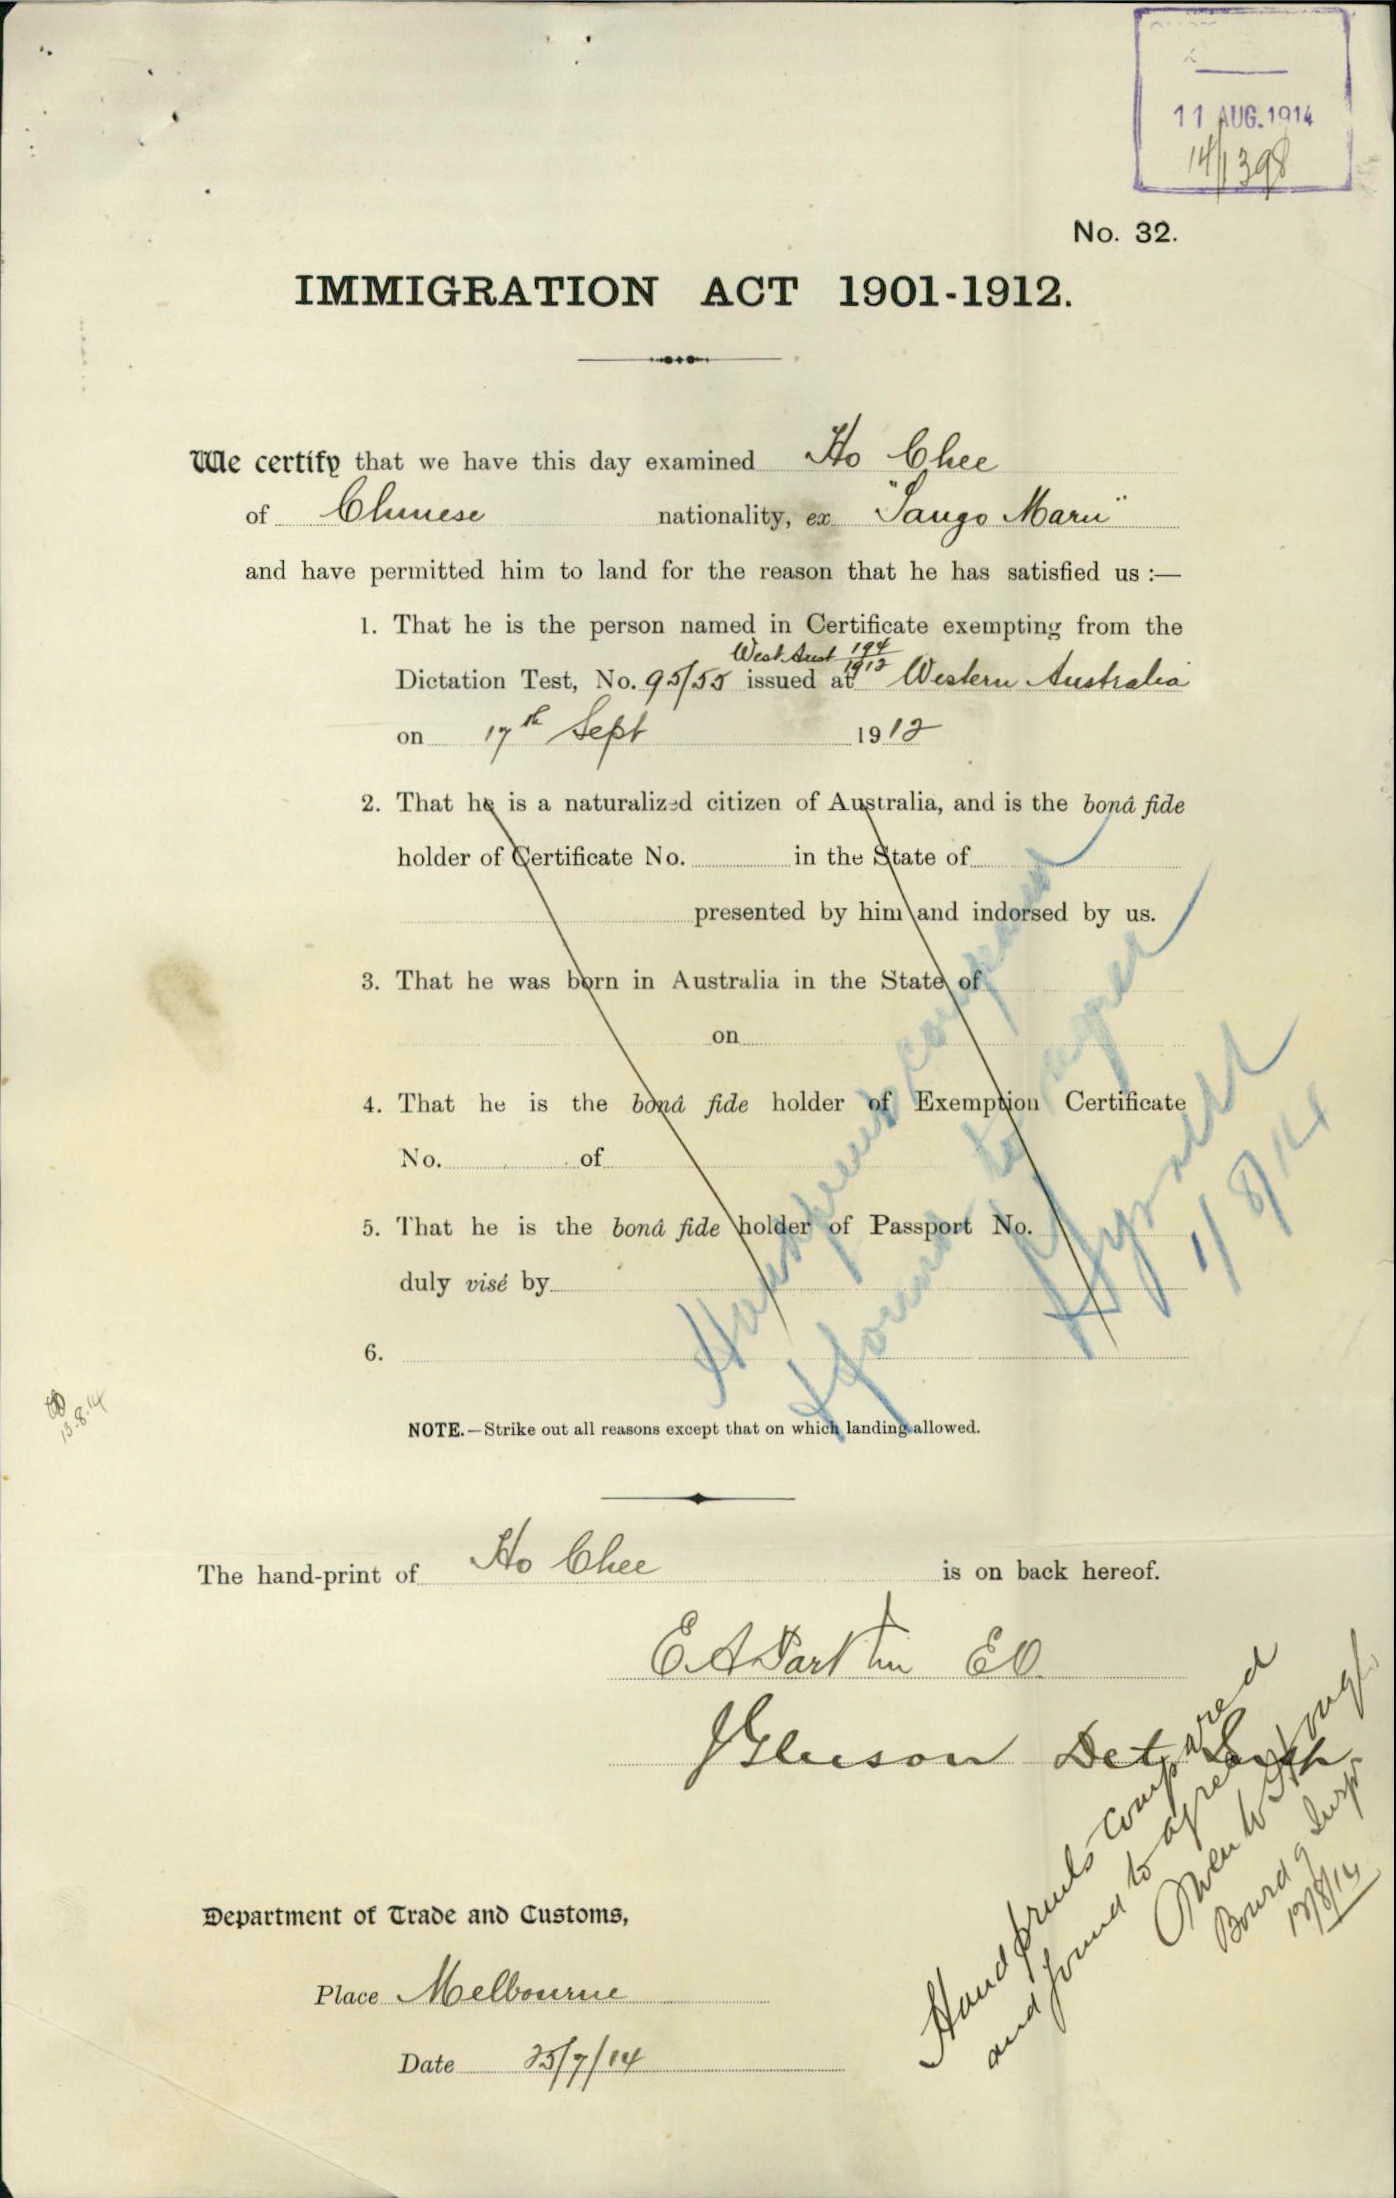 11 AUG. 1914
14/1398
No. 32.
IMMIGRATION ACT 1901-1912.
We certify that we have this day examined Ho Chee
of Chinese nationality, ex "Tango Maru"
and have permitted him to land for the reason that he has satisfied us :—
1. That he is the person named in Certificate exempting from the
West Aust 194/1912
Dictation Test, No. 95/55 issued at Western Australia
on 17th Sept 1912
2. That he is a naturalized citizen of Australia, and is the bonâ fide
holder of Certificate No. in the State of
presented by him and indorsed by us.
3. That he was born in Australia in the State of
on
4. That he is the bonâ fide holder of Exemption Certificate
No. of
5. That he is the bonâ fide holder of Passport No.
duly visé by
6.
Handprints compared
& found to agree
11/8/14
13.8.14
NOTE.—Strike out all reasons except that on which landing allowed.
The hand-print of Ho Chee is on back hereof.
E A Parkin EO
J Gleeson Det.
Hand prints compared
and found to agree
Owen
Board g Insp
12/8/14
Department of Trade and Customs,
Place Melbourne
Date 25/7/14